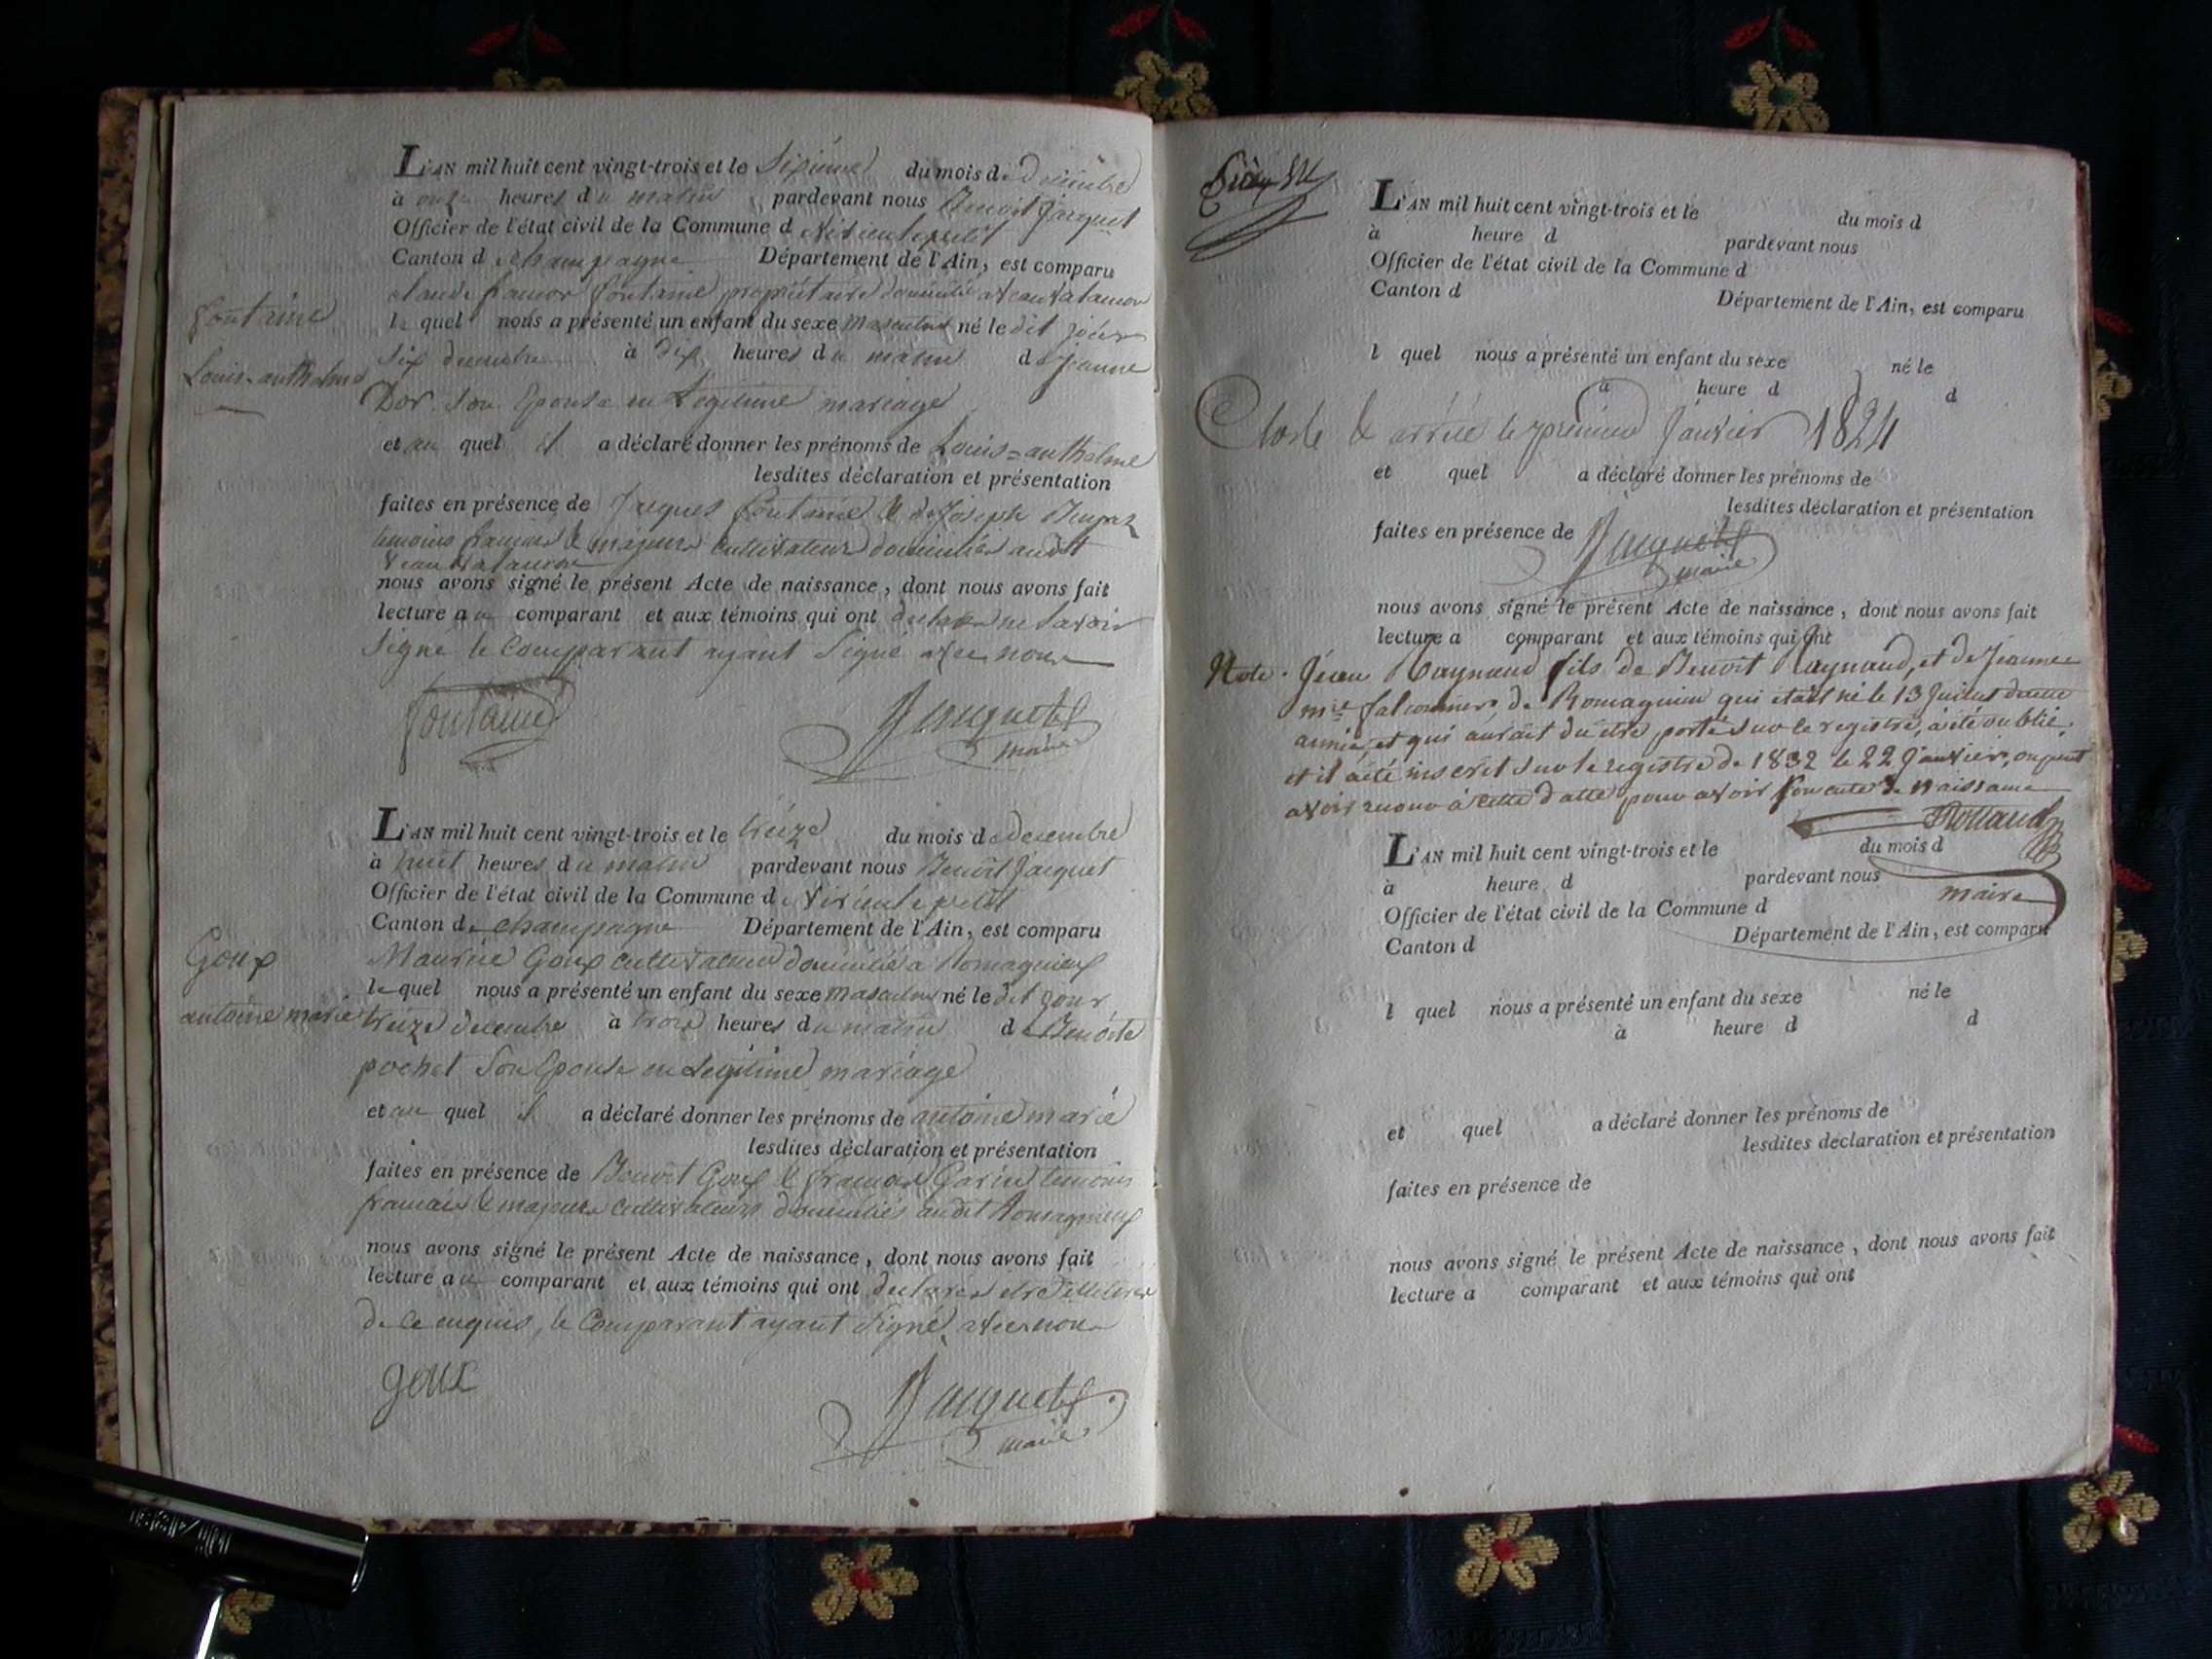 L'AN mil huit cent vingt-trois et le Sixième du mois de Decembre
à onze heures du matin pardevant nous Benoit Jacquet
Officier de l'état civil de la Commune de Virieulepetit
Canton de champagne Département de l'Ain, est comparu
claude francois fontaine propriétaire domicilié a
fontaine
le quel nous a présenté un enfant du sexe masculin né le dit jour
Six decembre à dix heures du matin de jeanne
Louis-anthelme
Dor Son Epouse en Légitime mariage
et au quel il a déclaré donner les prénoms de Louis=anthelme
lesdites déclaration et présentation
faites en présence de Jacques fontaine & de Joseph
temoins francais & majeurs cultivateurs domiciliés audit
nous avons signé le présent Acte de naissance, dont nous avons fait
lecture au comparant et aux témoins qui ont declaré ne Savoir
Signé le Comparant ayant Signé avec nous
fontaine
Jacquet
maire
L'AN mil huit cent vingt-trois et le treize du mois de decembre
à huit heures du matin pardevant nous Benoit Jacquet
Officier de l'état civil de la Commune de Virieulepetit
Canton de champagne Département de l'Ain, est comparu
Goux
Maurice Goux cultivateur domicilié a Romagnieux
le quel nous a présenté un enfant du sexe masculin né le dit jour
antoine marie
treize decembre à trois heures du matin de Benoite
pochet Son Epouse en Légitime mariage
et au quel il a déclaré donner les prénoms de antoine marie
lesdites déclaration et présentation
faites en présence de Benoit Goux & francois Garin temoins
francais & majeurs cultivateurs domiciliés audit Romagnieux
nous avons signé le présent Acte de naissance, dont nous avons fait
lecture au comparant et aux témoins qui ont declaré etre illiteres
de ce enquis, le Comparant ayant Signé avec nous
goux
Jacquet
maire
L'AN mil huit cent vingt-trois et le du mois d
à heure d pardevant nous
Officier de l'état civil de la Commune d
Canton d Département de l'Ain, est comparu
l quel nous a présenté un enfant du sexe né le
à heure d d
Closle & arrété le premier Janvier 1824
et quel a déclaré donner les prénoms de
lesdites déclaration et présentation
faites en présence de
Jacquet
maire
nous avons signé le présent Acte de naissance, dont nous avons fait
lecture a comparant et aux témoins qui ont
Note. Jean Raynaud fils de Benoit Raynaud, et de Jeanne
mie falconnier de Romagnieu qui etait né le 13 Juillet
année, et qui aurait du etre porté sur le registre, a été oublié,
et il a été inscrit sur le registre de 1832 le 22 Janvier, on peut
avoir recour à cette datte pour avoir Son acte de Naissance
Rolland
L'AN mil huit cent vingt-trois et le du mois d
à heure d pardevant nous
maire
Officier de l'état civil de la Commune d
Canton d Département de l'Ain, est comparu
l quel nous a présenté un enfant du sexe né le
à heure d d
et quel a déclaré donner les prénoms de
lesdites déclaration et présentation
faites en présence de
nous avons signé le présent Acte de naissance, dont nous avons fait
lecture a comparant et aux témoins qui ont